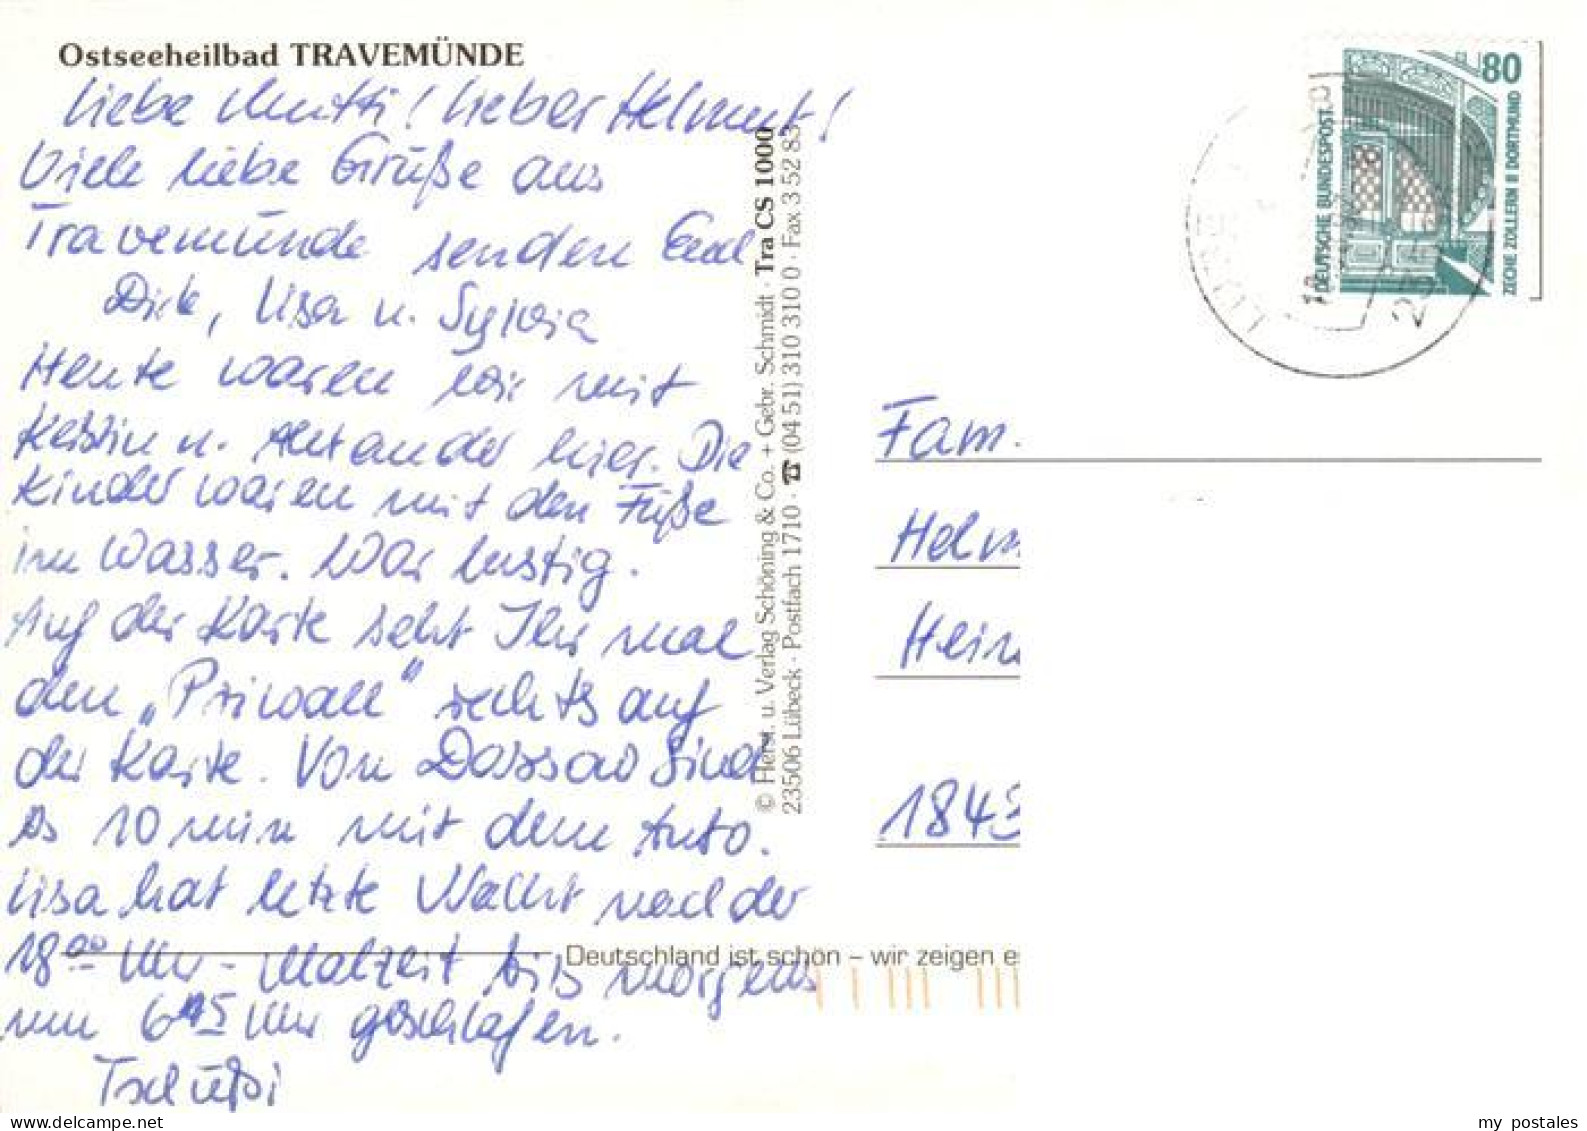 Ostseeheilbad TRAVEMÜNDE
Liebe Mutti! Lieber Helmut!
Viele liebe Grüße aus
Travemünde senden Euch
Dirk, Lisa u. Sylvia
Heute waren wir mit
Kerstin u. Alexander hier. Die
Kinder waren mit den Füße
im Wasser. War lustig.
Auf der Karte seht Ihr mal
den „Priwall“ rechts auf
der Karte. Von Dassow sind
es 10 min mit dem Auto.
Lisa hat letzte Nacht nach der
18⁰⁰ Uhr - Malzeit bis morgens
um 6⁴⁵ Uhr geschlafen.
Tschüßi
© Herst. u. Verlag Schöning & Co. + Gebr. Schmidt · Tra CS 1000
23506 Lübeck · Postfach 1710 · ☎ (04 51) 310 310 0 · Fax 3 52 83
Deutschland ist schön – wir zeigen es
80
DEUTSCHE BUNDESPOST
ZECHE ZOLLERN II DORTMUND
Fam.
Helm
Hein
1843
my postales